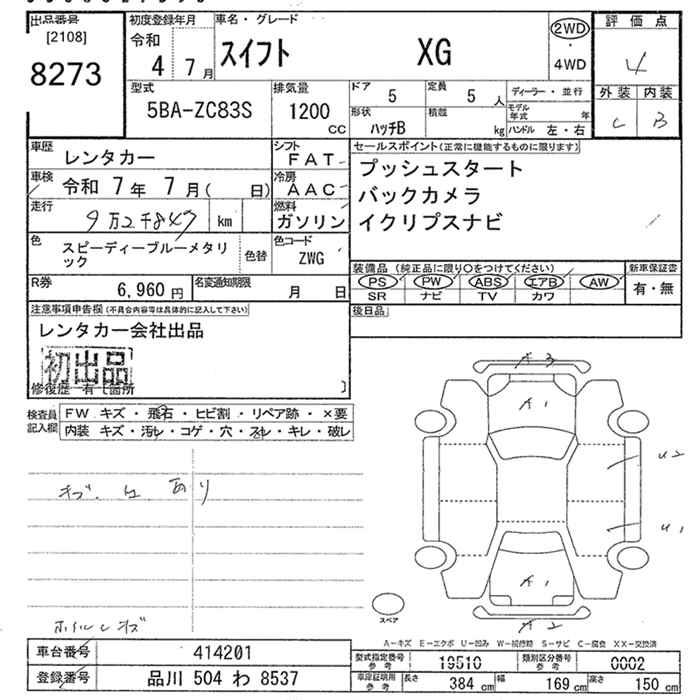 出品番号
[2108]
8273
初度登録年月
令和
4 7月
車名・グレード
スイフト XG
2WD
・
4WD
評価点
4
外装 内装
C B
型式
5BA-ZC83S
排気量
1200
CC
ドア 5
定員 5人
形状 ハッチB
積載 kg
ディーラー・並行
モデル年式 年
ハンドル 左・右
車歴 レンタカー
シフト FAT
車検 令和 7年 7月( 日)
冷房 AAC
走行 9万2千847 km
燃料 ガソリン
色 スピーディーブルーメタリック
色替
色コード ZWG
R券 6,960円
名変通知期限 月 日
セールスポイント(正常に機能するものに限ります)
プッシュスタート
バックカメラ
イクリプスナビ
装備品 (純正品に限り〇をつけてください)
PS PW ABS エアB AW
SR ナビ TV カワ
新車保証書
有・無
後日品
注意事項申告欄(不具合内容等は具体的に記入して下さい)
レンタカー会社出品
初出品
修復歴 有 [箇所 ]
検査員記入欄
FW キズ・飛石・ヒビ割・リペア跡・×要
内装 キズ・汚レ・コゲ・穴・スレ・キレ・破レ
あり
A3
A1
U2
U1
A1
A2
スペア
A-キズ E-エクボ U-凹み W-補修跡 S-サビ C-腐食 XX-交換済
車台番号 414201
登録番号 品川 504 わ 8537
型式指定番号 参考 19510
類別区分番号 参考 0002
車庫証明用 参考 長さ 384cm 幅 169cm 高さ 150cm